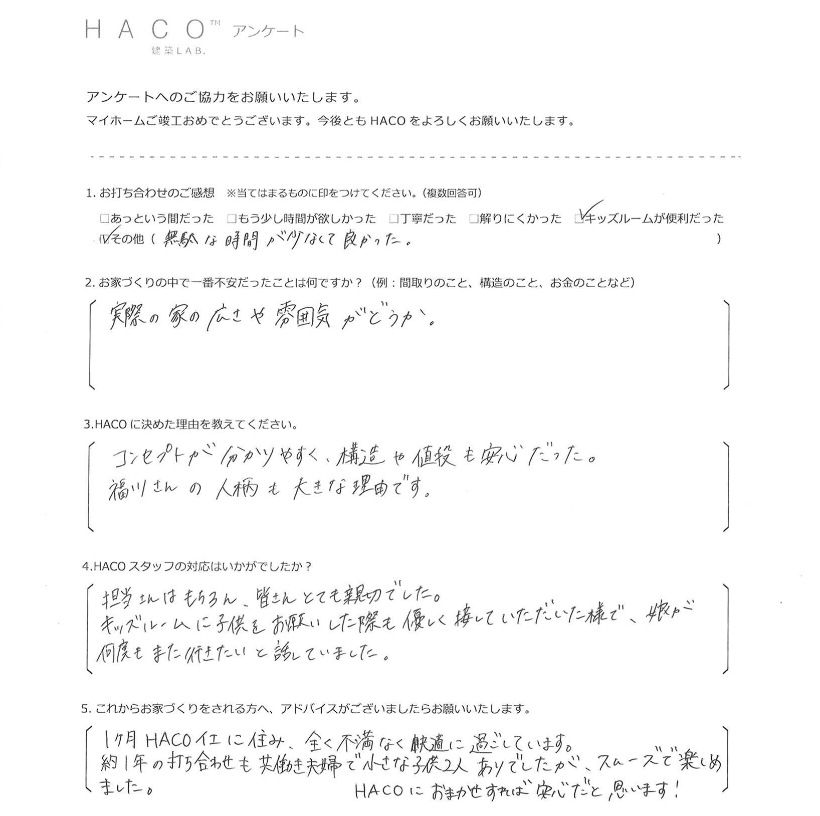 HACO™ アンケート
建築LAB.
アンケートへのご協力をお願いいたします。
マイホームご竣工おめでとうございます。今後とも HACO をよろしくお願いいたします。
1. お打ち合わせのご感想 ※当てはまるものに印をつけてください。（複数回答可）
□あっという間だった □もう少し時間が欲しかった □丁寧だった □解りにくかった ☑キッズルームが便利だった
☑その他（ 無駄な時間が少なくて良かった。 ）
2. お家づくりの中で一番不安だったことは何ですか？（例：間取りのこと、構造のこと、お金のことなど）
実際の家の広さや雰囲気がどうか。
3.HACO に決めた理由を教えてください。
コンセプトが分かりやすく、構造や値段も安心だった。
福川さんの人柄も大きな理由です。
4.HACO スタッフの対応はいかがでしたか？
担当さんはもちろん、皆さんとても親切でした。
キッズルームに子供をお願いした際も優しく接していただいた様で、娘が
何度もまた行きたいと話していました。
5. これからお家づくりをされる方へ、アドバイスがございましたらお願いいたします。
1ヶ月HACOイエに住み、全く不満なく快適に過ごしています。
約1年の打ち合わせも共働き夫婦で小さな子供2人ありでしたが、スムーズで楽しめ
ました。 HACOにおまかせすれば安心だと思います！